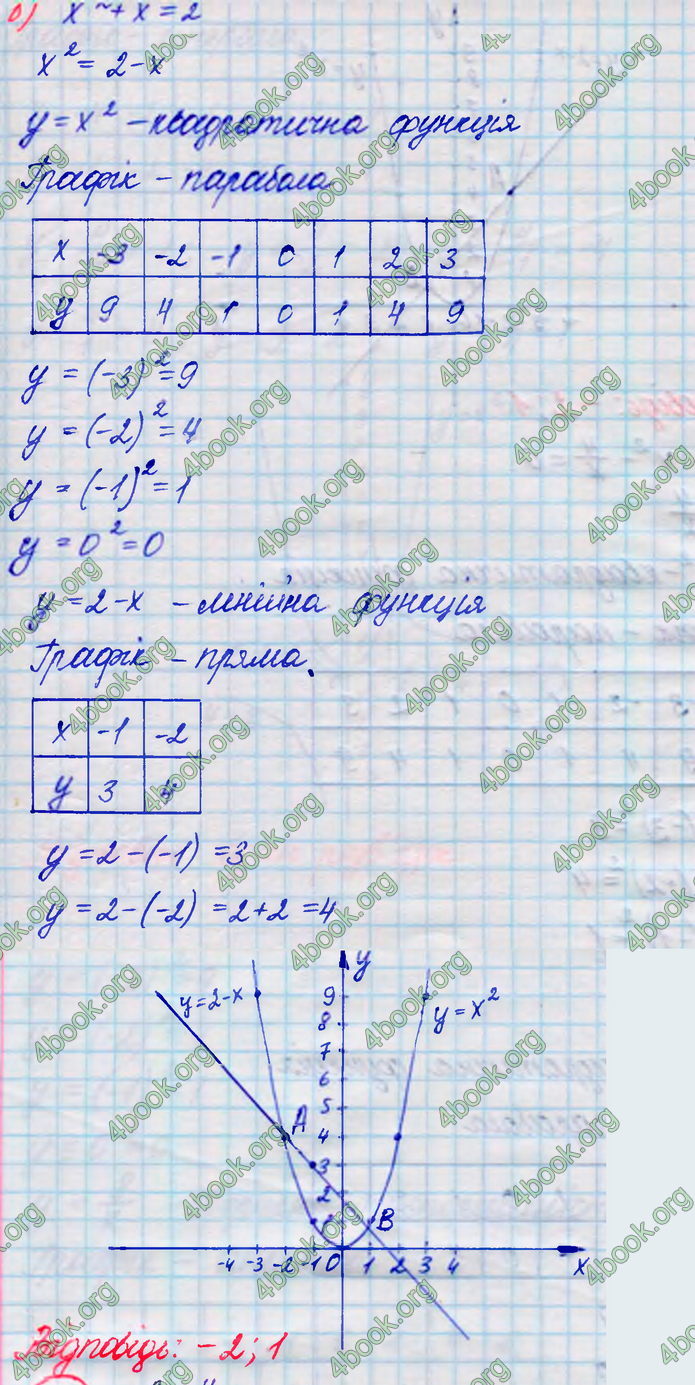 в) x² + x = 2
x² = 2 - x
y = x² - квадратична функція
Графік - парабола
x -3 -2 -1 0 1 2 3
y 9 4 1 0 1 4 9
y = (-3)² = 9
y = (-2)² = 4
y = (-1)² = 1
y = 0² = 0
y = 2 - x - лінійна функція
Графік - пряма.
x -1 -2
y 3 4
y = 2 - (-1) = 3
y = 2 - (-2) = 2 + 2 = 4
y
y = 2 - x
9
y = x²
8
7
6
5
A
4
3
2
1
B
-4 -3 -2 -1 0 1 2 3 4 x
Відповідь: -2; 1
4book.org